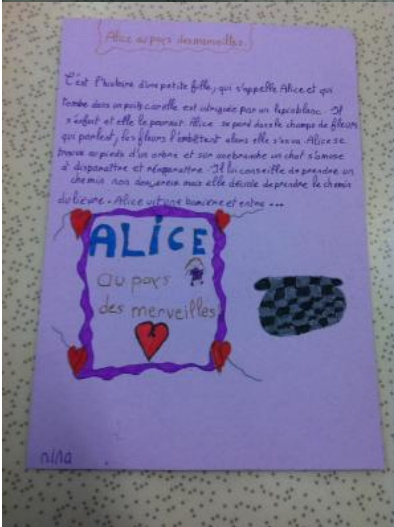 Alice au pays des merveilles.
C'est l'histoire d'une petite fille, qui s'appelle Alice et qui
tombe dans un puits car elle est intriguée par un lapin blanc. Il
s'enfuit et elle le poursuit. Alice se perd dans le champs de fleurs
qui parlent, les fleurs l'embêtent alors elle s'en va. Alice se
trouve au pieds d'un arbre et sur une branche un chat s'amuse
à disparaître et réapparaître. Il lui conseille de prendre un
chemin non dangereux mais elle décide de prendre le chemin
du lièvre. Alice voit une lumière et entre ...
ALICE
au pays
des merveilles
nina